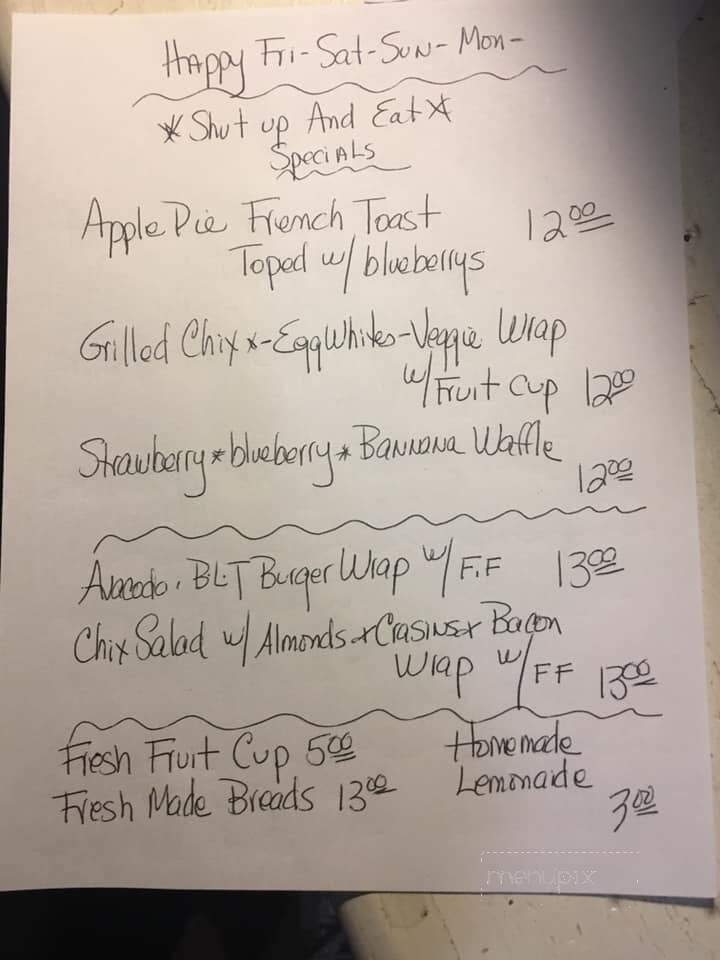 Happy Fri-Sat-Sun-Mon-
*Shut up And Eat*
Specials
Apple Pie French Toast 12.00
Toped w/ blueberrys
Grilled Chix x-Egg Whites-Veggie Wrap
w/ Fruit Cup 12.00
Strawberry*blueberry*Bannana Waffle
12.00
Avacado. BLT Burger Wrap w/ F.F 13.00
Chix Salad w/ Almonds x Crasins x Bacon
Wrap w/ FF 13.00
Fresh Fruit Cup 5.00
Fresh Made Breads 13.00
Homemade
Lemonade
3.00
menupix